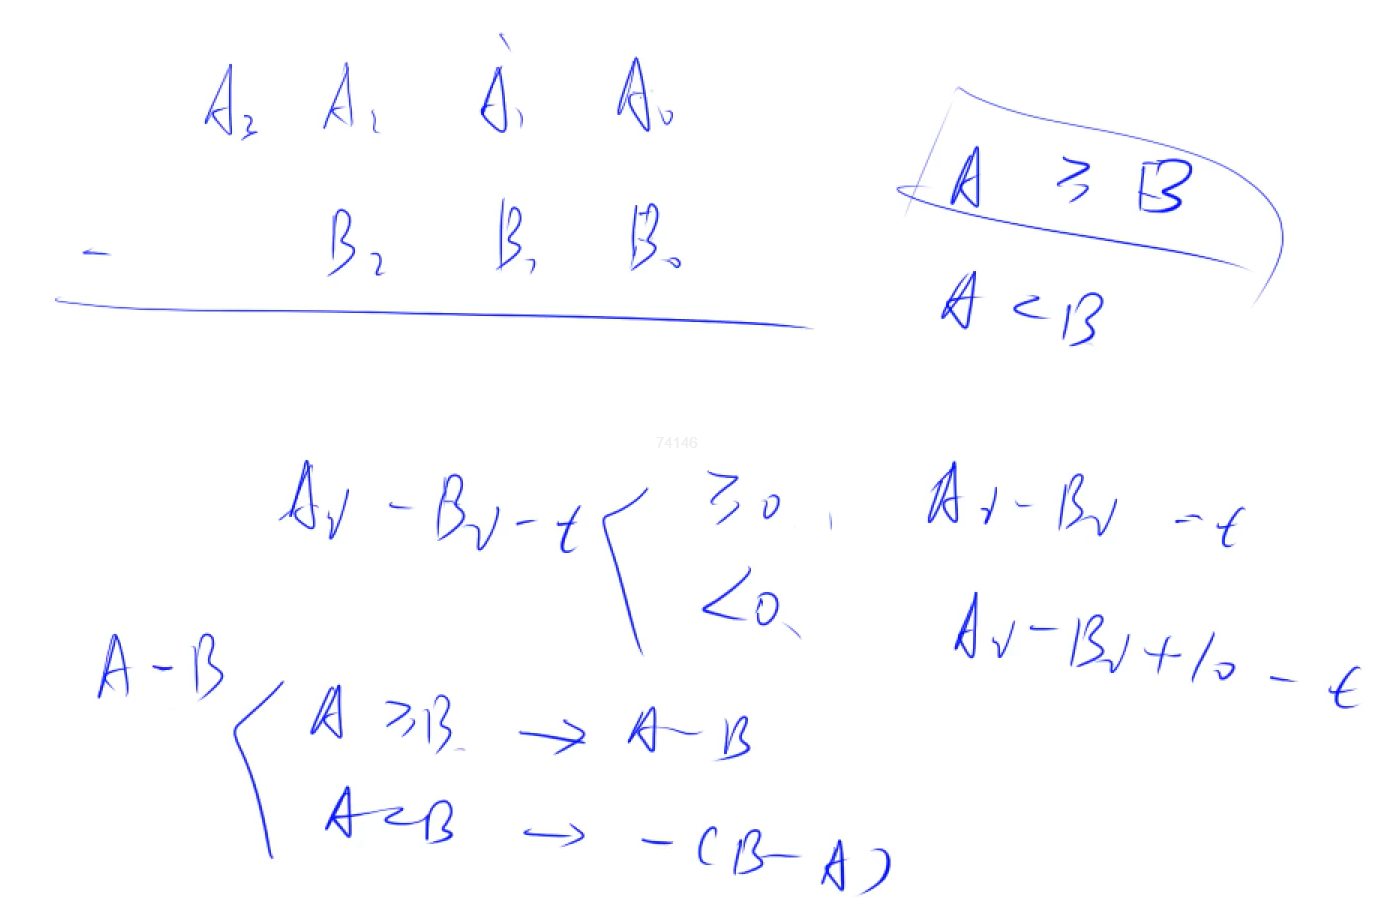 A₃ A₂ A₁ A₀
- B₂ B₁ B₀
A ≥ B
A < B
74146
Aᵢ - Bᵢ - t ≥0, Aᵢ - Bᵢ - t
<0, Aᵢ - Bᵢ + 10 - t
A - B
A ≥ B → A - B
A < B → - (B - A)